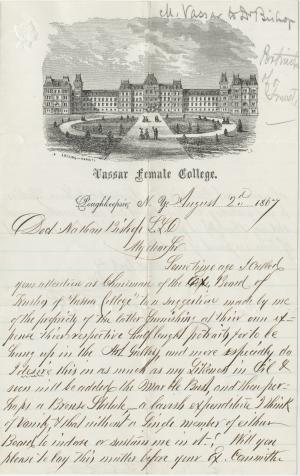 M. Vassar to Dr Bishop
Portraits
of
Vassar Female College.
Poughkeepsie, N. Y. August 2nd 1867
Doct Nathan Bishop L.L.D
My dear Sir
Some time ago I called
your attention as Chairman of the Ex. Board of
Trustees of "Vassar College" to a suggestion made by me
of the propriety of the latter furnishing at their own ex-
pense their respective half lenght portraits for to be
hung up in the Art Gallery, and more especialy do
I desire this in as much as my Likeness in Oil &
soon will be added the Marble Bust, and then per-
haps a Bronse Statute, a lavish expenditure I think
of Vanity, & that without a single member of either
Board to indorse or sustain me in it! Will you
please to lay this matter before your Ex. Committee